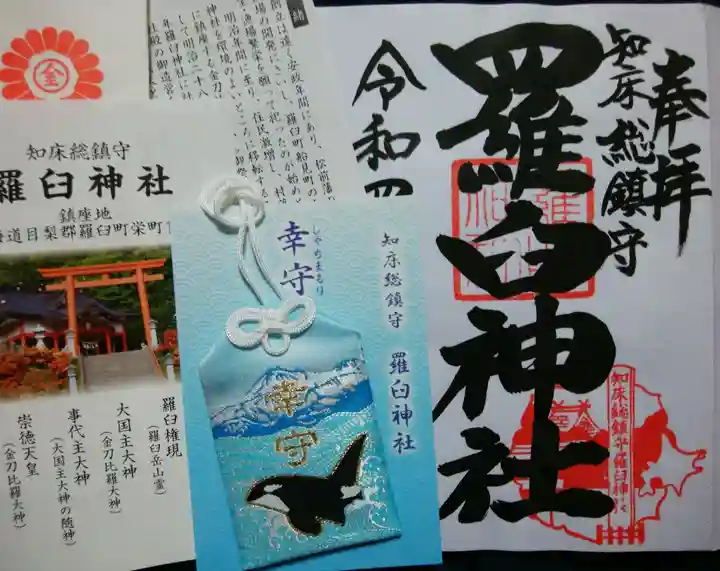 奉拝
知床総鎮守
羅臼神社
令和四
知床総鎮守羅臼神社
金
知床総鎮守
羅臼神社
鎮座地
海道目梨郡羅臼町栄町1
羅臼権現
(羅臼岳山霊)
大国主大神
(金刀比羅大神)
事代主大神
(大国主大神の随神)
崇徳天皇
(金刀比羅大神)
知床総鎮守 羅臼神社
幸守
しゃちまもり
幸守
創立は遠く安政年間にあり、松前藩
場の開発にさいし、羅臼町船見町の
漁場繁栄を願って祀ったのが始め
明治年間に至り、住民激増し、村